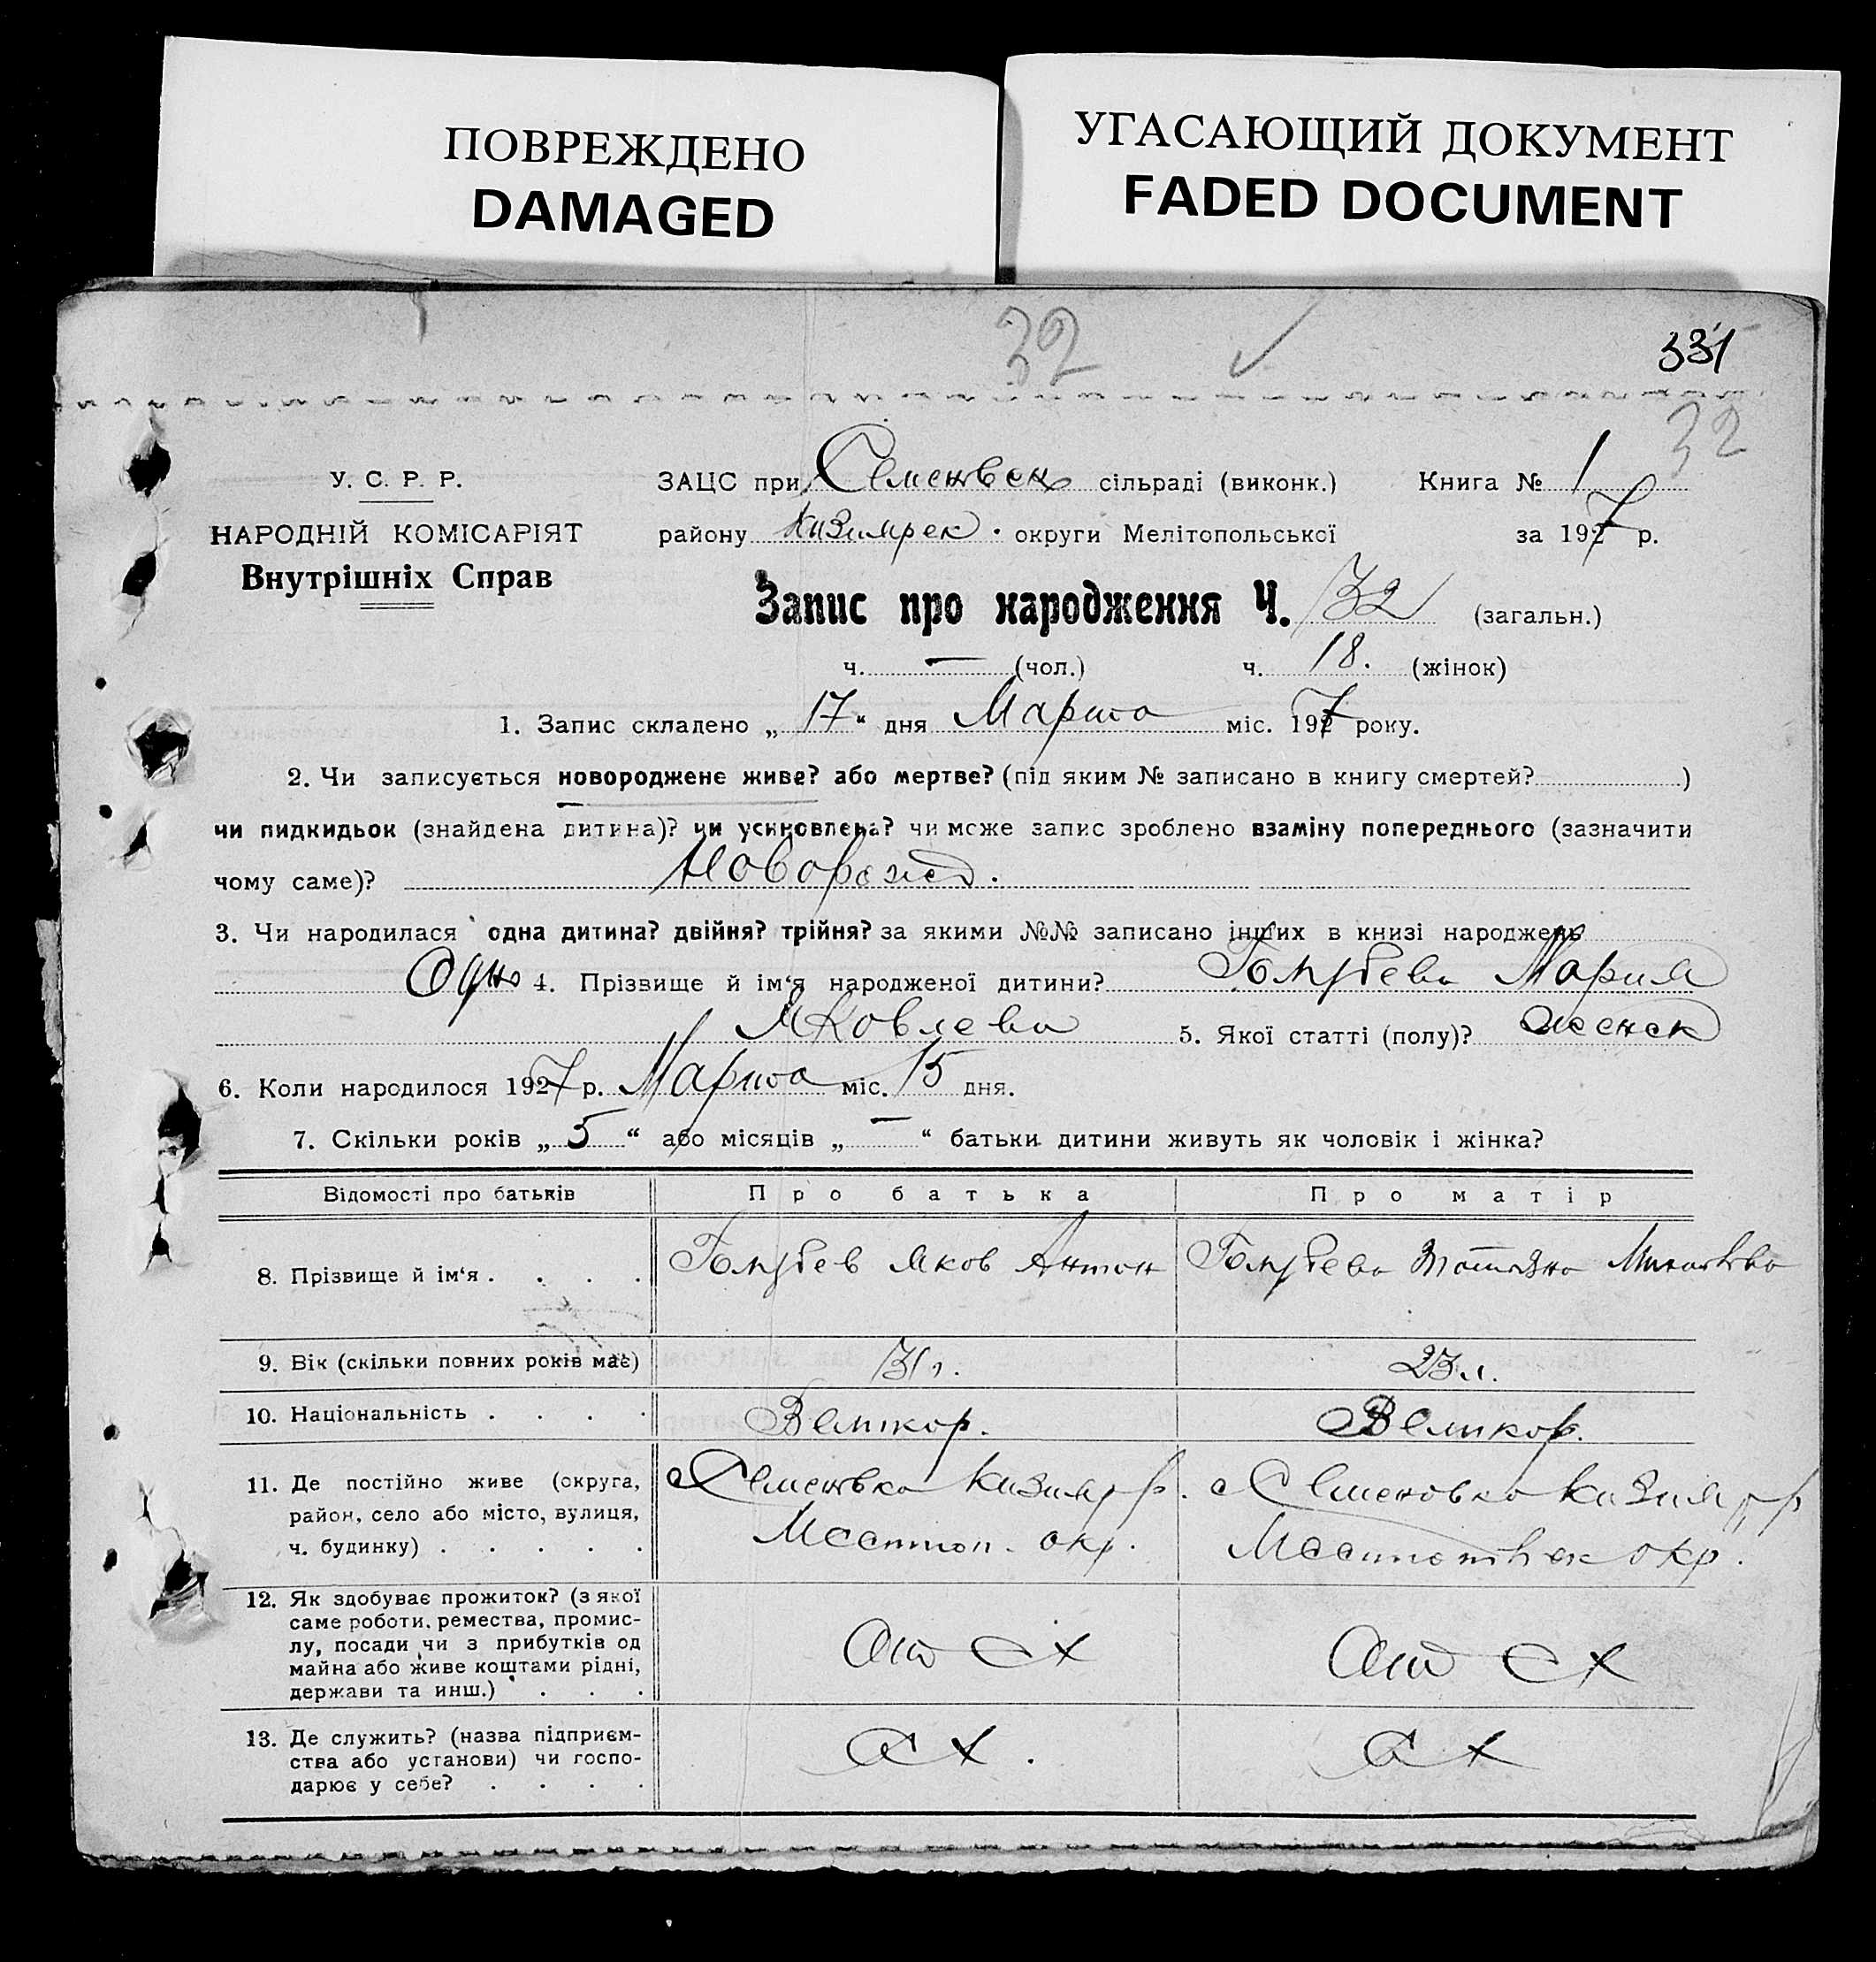 ПОВРЕЖДЕНО
DAMAGED
УГАСАЮЩИЙ ДОКУМЕНТ
FADED DOCUMENT
32
331
32
У. С. Р. Р.
НАРОДНІЙ КОМІСАРІЯТ
Внутрішніх Справ
ЗАЦС при Семеновск сільраді (виконк.) Книга № 1
району Кизиярск. округи Мелітопольської за 1927 р.
Запис про народження Ч. 32 (загальн.)
ч. — (чол.) ч. 18. (жінок)
1. Запис складено „ 17 “ дня Марта міс. 1927 року.
2. Чи записується новороджене живе? або мертве? (під яким № записано в книгу смертей? )
чи пидкидьок (знайдена дитина)? чи усиновлена? чи може запис зроблено взаміну попереднього (зазначити
чому саме)? Новорожд.
3. Чи народилася одна дитина? двійня? трійня? за якими №№ записано інших в книзі народжень
Одно 4. Прізвище й ім‘я народженої дитини? Голубева Мария
Яковлева 5. Якої статті (полу)? женск
6. Коли народилося 1927 р. Марта міс. 15 дня.
7. Скільки років „ 5 “ або місяців „ — “ батьки дитини живуть як чоловік і жінка?
Відомості про батьків Про батька Про матір
8. Прізвище й ім‘я . . . . Голубев Яков Антон Голубева Татьяна
9. Вік (скільки повних років має) 31 г. 23 л.
10. Національність . . . . Великор. Великор.
11. Де постійно живе (округа,
район, село або місто, вулиця,
ч. будинку) . . . . .
с Семеновка Кизияр р.
Мелитоп. окр.
с Семеновка Кизияр р
окр.
12. Як здобуває прожиток? (з якої
саме роботи, ремества, промис-
лу, посади чи з прибутків од
майна або живе коштами рідні,
держави та инш.) . . .
От СХ
От СХ
13. Де служить? (назва підприєм-
ства або установи) чи госпо-
дарює у себе? . . . .
СХ.
СХ